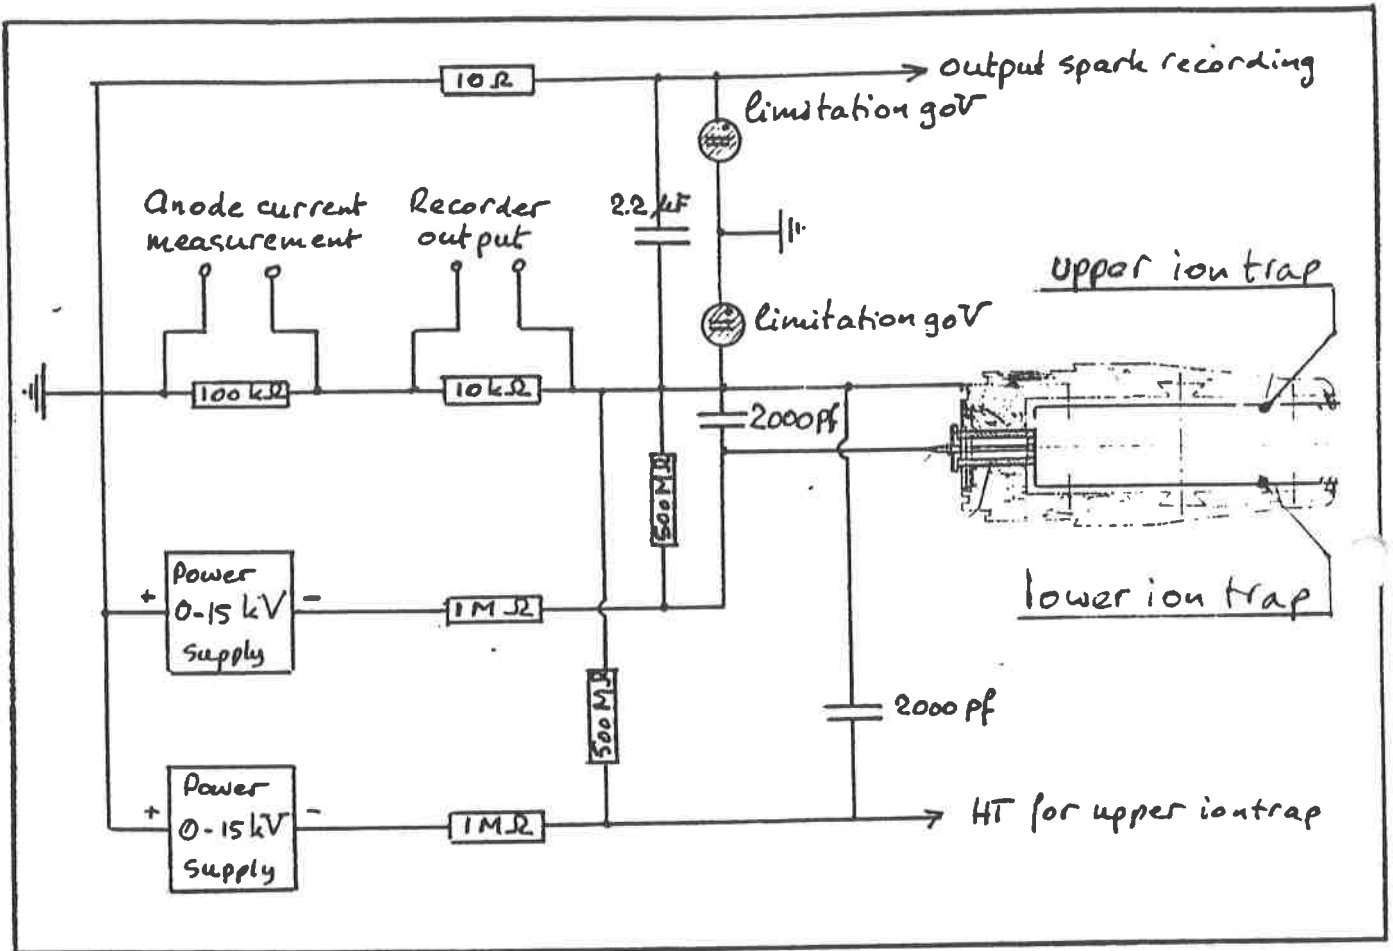 10Ω
output spark recording
limitation 90V
Anode current
measurement
Recorder
output
2.2 µF
upper ion trap
limitation 90V
100kΩ
10kΩ
2000pf
500MΩ
Power
0-15 kV
Supply
+
-
1MΩ
lower ion trap
500MΩ
2000 pf
Power
0-15kV
Supply
+
-
1MΩ
HT for upper iontrap